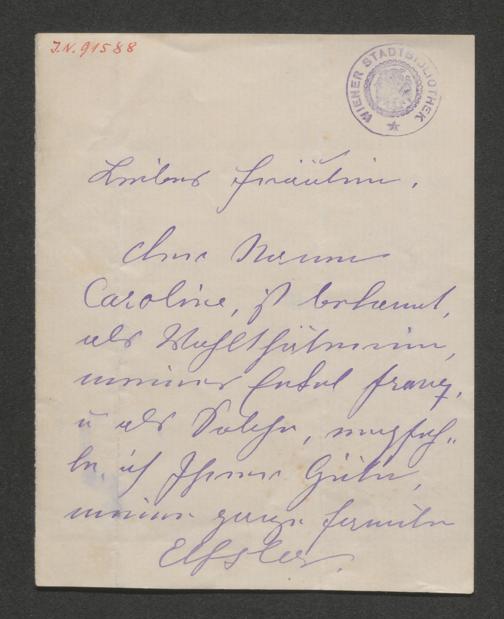 J.N. 91588
WIENER STADTBIBLIOTHEK
Liebes Fräulein,
Ihre Name
Caroline, ist bekannt,
als Wohlthäterin,
meiner Enkel franz,
u als Solche, empfeh-
le, ich Ihrer Güte,
meine ganze familie
Elssler.